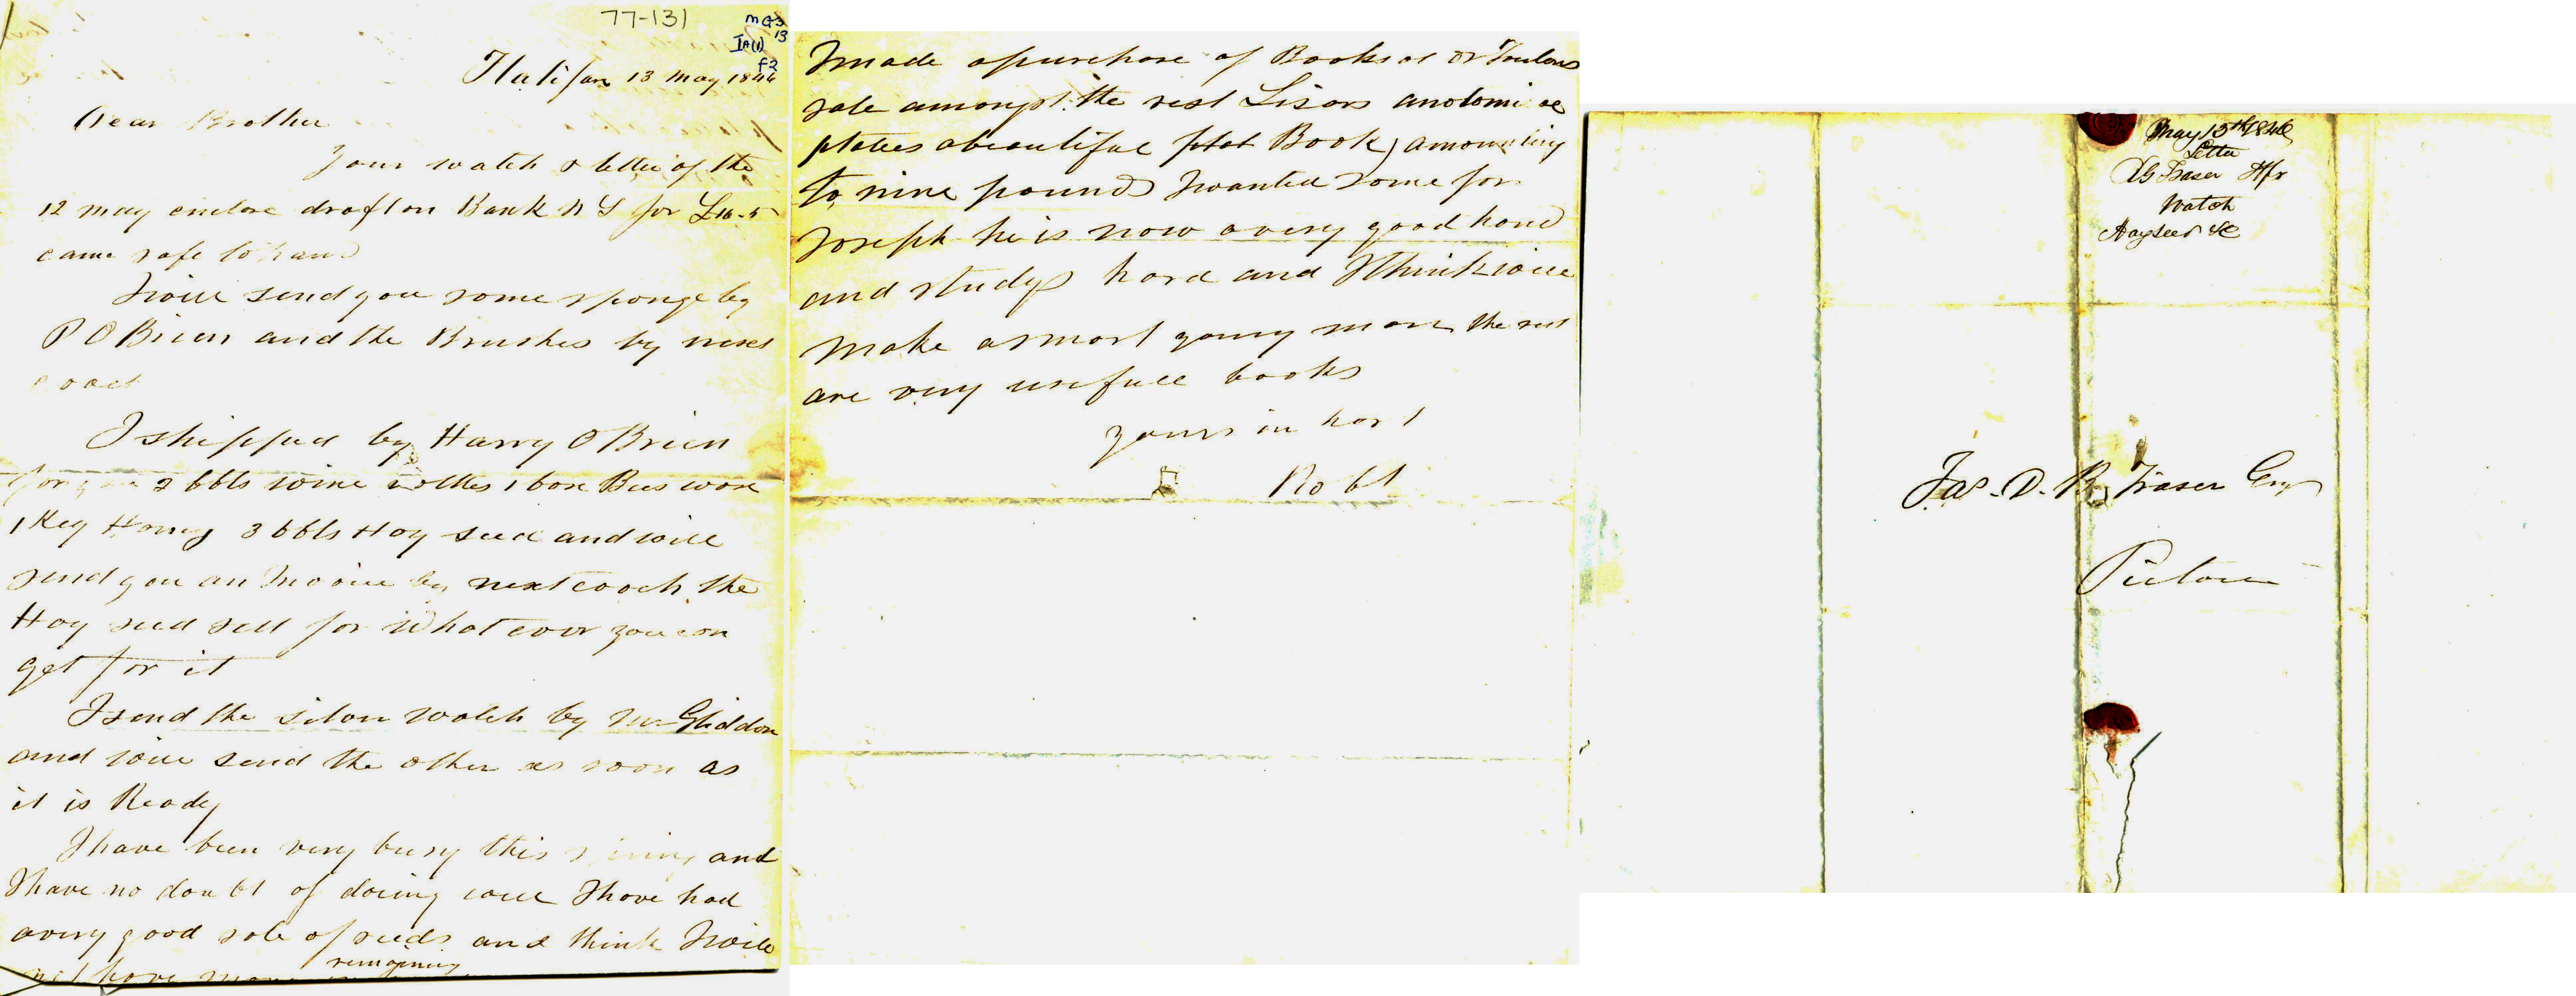 77-131
MG3
13
IA(1)
F2
Halifax 13 May 1846
Dear Brother
Your watch & letter of the
12 may enclose draft on Bank N S for £16-5
came safe to hand
I will send you some sponge by
P O Brien and the Brushes by next
coach
I shipped by Harry O Brien
for you 2 bbls wine bottles 1 box Bees wax
1 Keg Honey 3 bbls Hay seed and will
send you an Invoice by next coach the
Hay seed sell for What ever you can
get for it
I send the silver watch by Mr Gliddon
and will send the other as soon as
it is Ready
I have been very busy this spring and
I have no doubt of doing well I have had
a very good sale of seeds and think I will
not have many remaining
I made a purchase of Books at Dr
sale amongst the rest Lizars anatomical
plates a beautiful Book) amounting
to nine pounds I wanted some for
Joseph he is now a very good hand
and studys hard and I think will
make a smart young man the rest
are very usefull books
yours in hast
Robt
May 13th 1846
Letter
Fraser Hfx
Watch
Hayseed &c
Jas. D. B. Fraser Esqr
Pictou